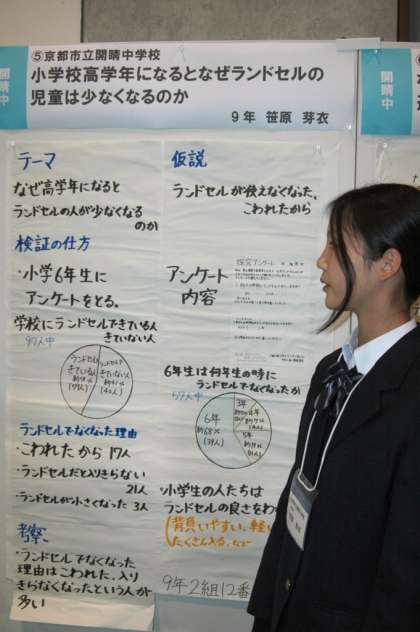 ⑤京都市立開睛中学校
小学校高学年になるとなぜランドセルの
児童は少なくなるのか
9年 笹原 芽衣
開睛中
開睛中
テーマ
なぜ高学年になると
ランドセルの人が少なくなる
のか
検証の仕方
・小学6年生に
アンケートをとる。
学校にランドセルできている人
きていない人
97人中
ランドセルで
きている人
(57人)
ランドセルで
きていない人
(40人)
ランドセルでなくなった理由
・こわれたから 17人
・ランドセルだと入りきらない
21人
・ランドセルが小さくなった 3人
考察
・ランドセルでなくなった
理由はこわれた、入り
きらなくなったという人が
多い
仮説
ランドセルが使えなくなった。
こわれたから
アンケート
内容
探究アンケート
6年生は何年生の時に
ランドセルでなくなったか
57人中
6年
約68%
(39人)
3年
4年
5年
・小学生の人たちは
ランドセルの良さをわ
(背負いやすい、軽い
たくさん入る、など
9年2組12番